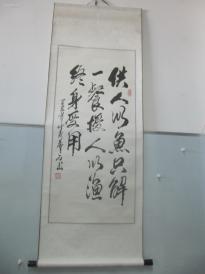 供人以魚只解
一餐授人以漁
終身受用